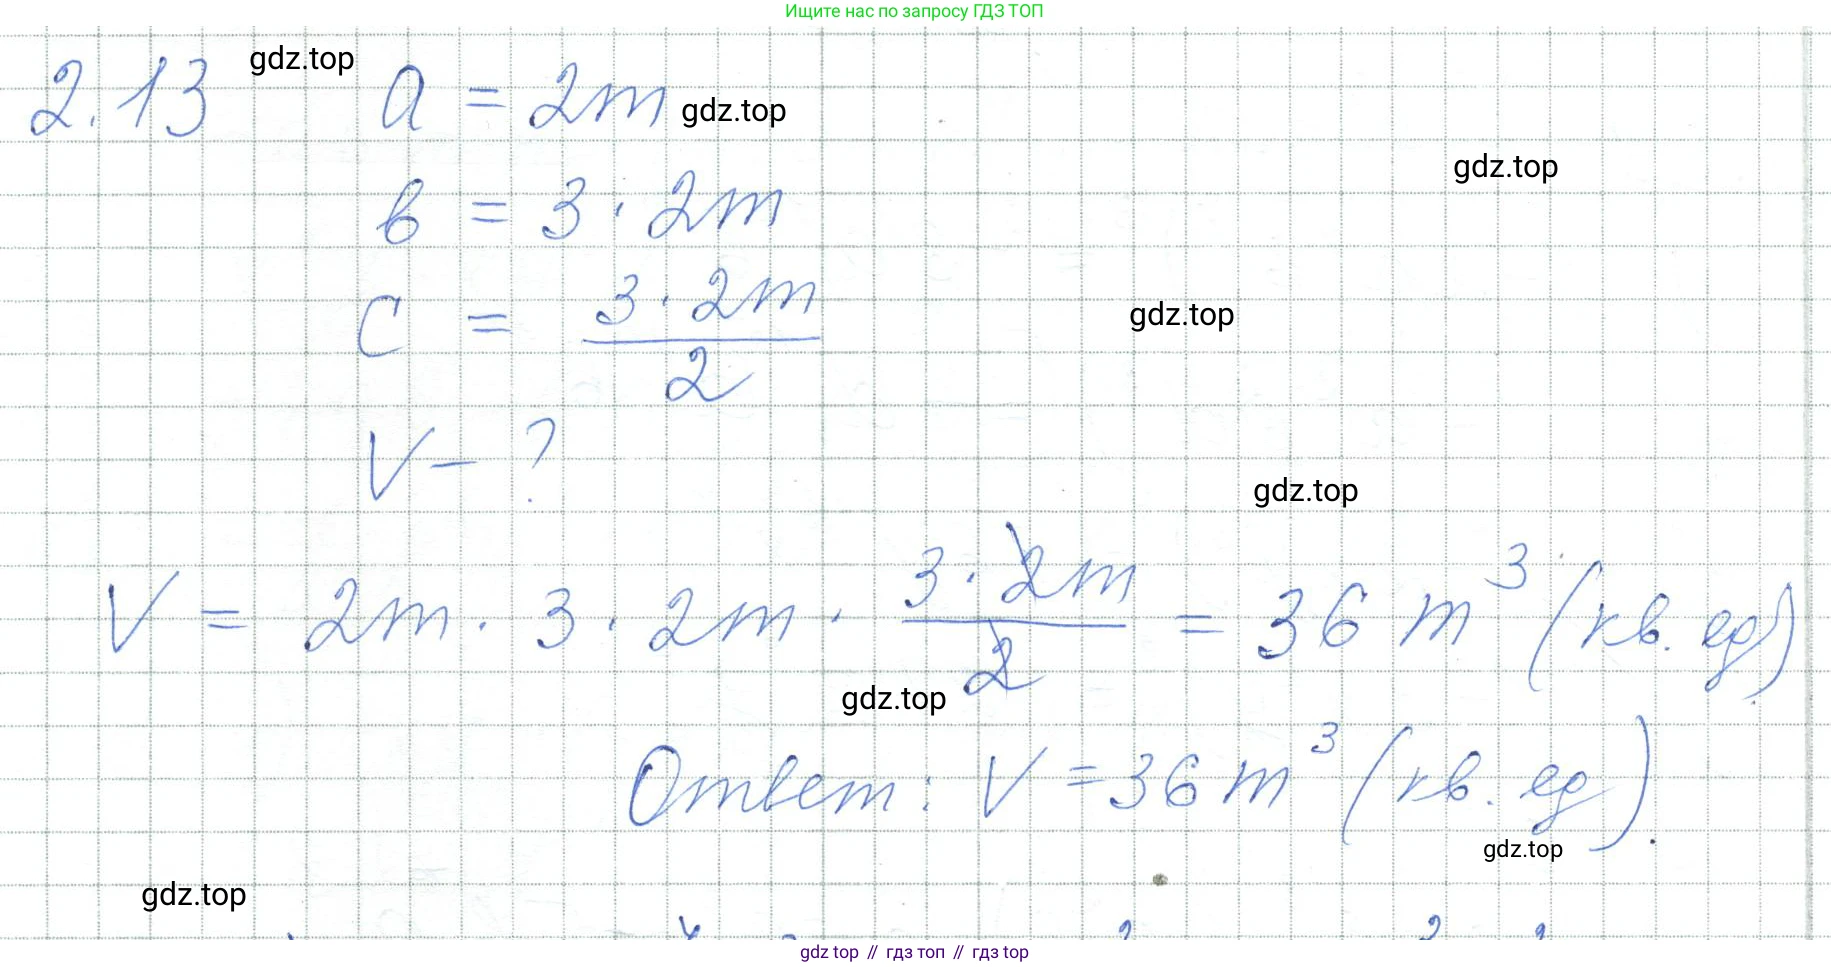 Ищите нас по запросу ГДЗ ТОП
gdz.top
2.13 a = 2m
gdz.top
gdz.top
b = 3 · 2m
c = \frac{3 · 2m}{2}
gdz.top
V - ?
gdz.top
V = 2m · 3 · 2m · \frac{3 · 2m}{2} = 36 m³ (кв. ед)
gdz.top
Ответ: V = 36 m³ (кв. ед).
gdz.top
gdz.top
gdz top // гдз топ // гдз top